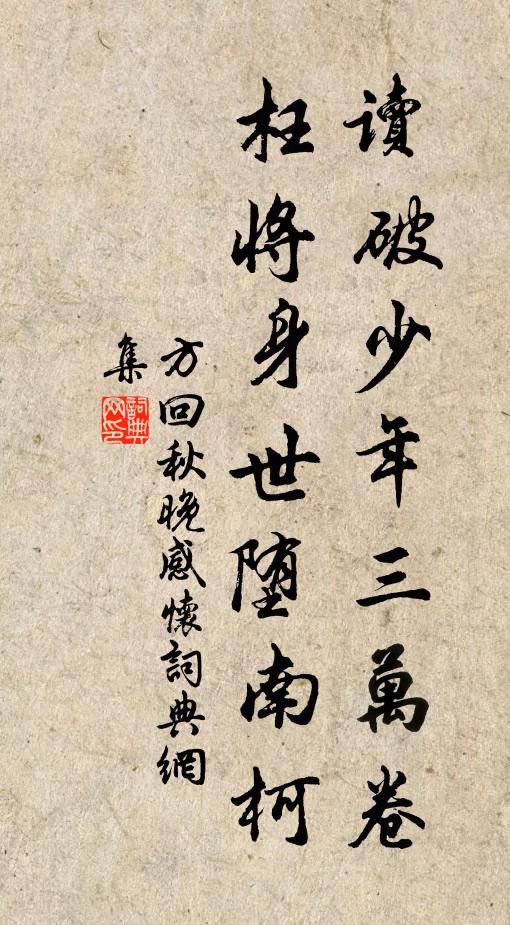 讀破少年三萬卷
枉將身世墮南柯
方回秋晚感懷詞典網
集
詞典网印